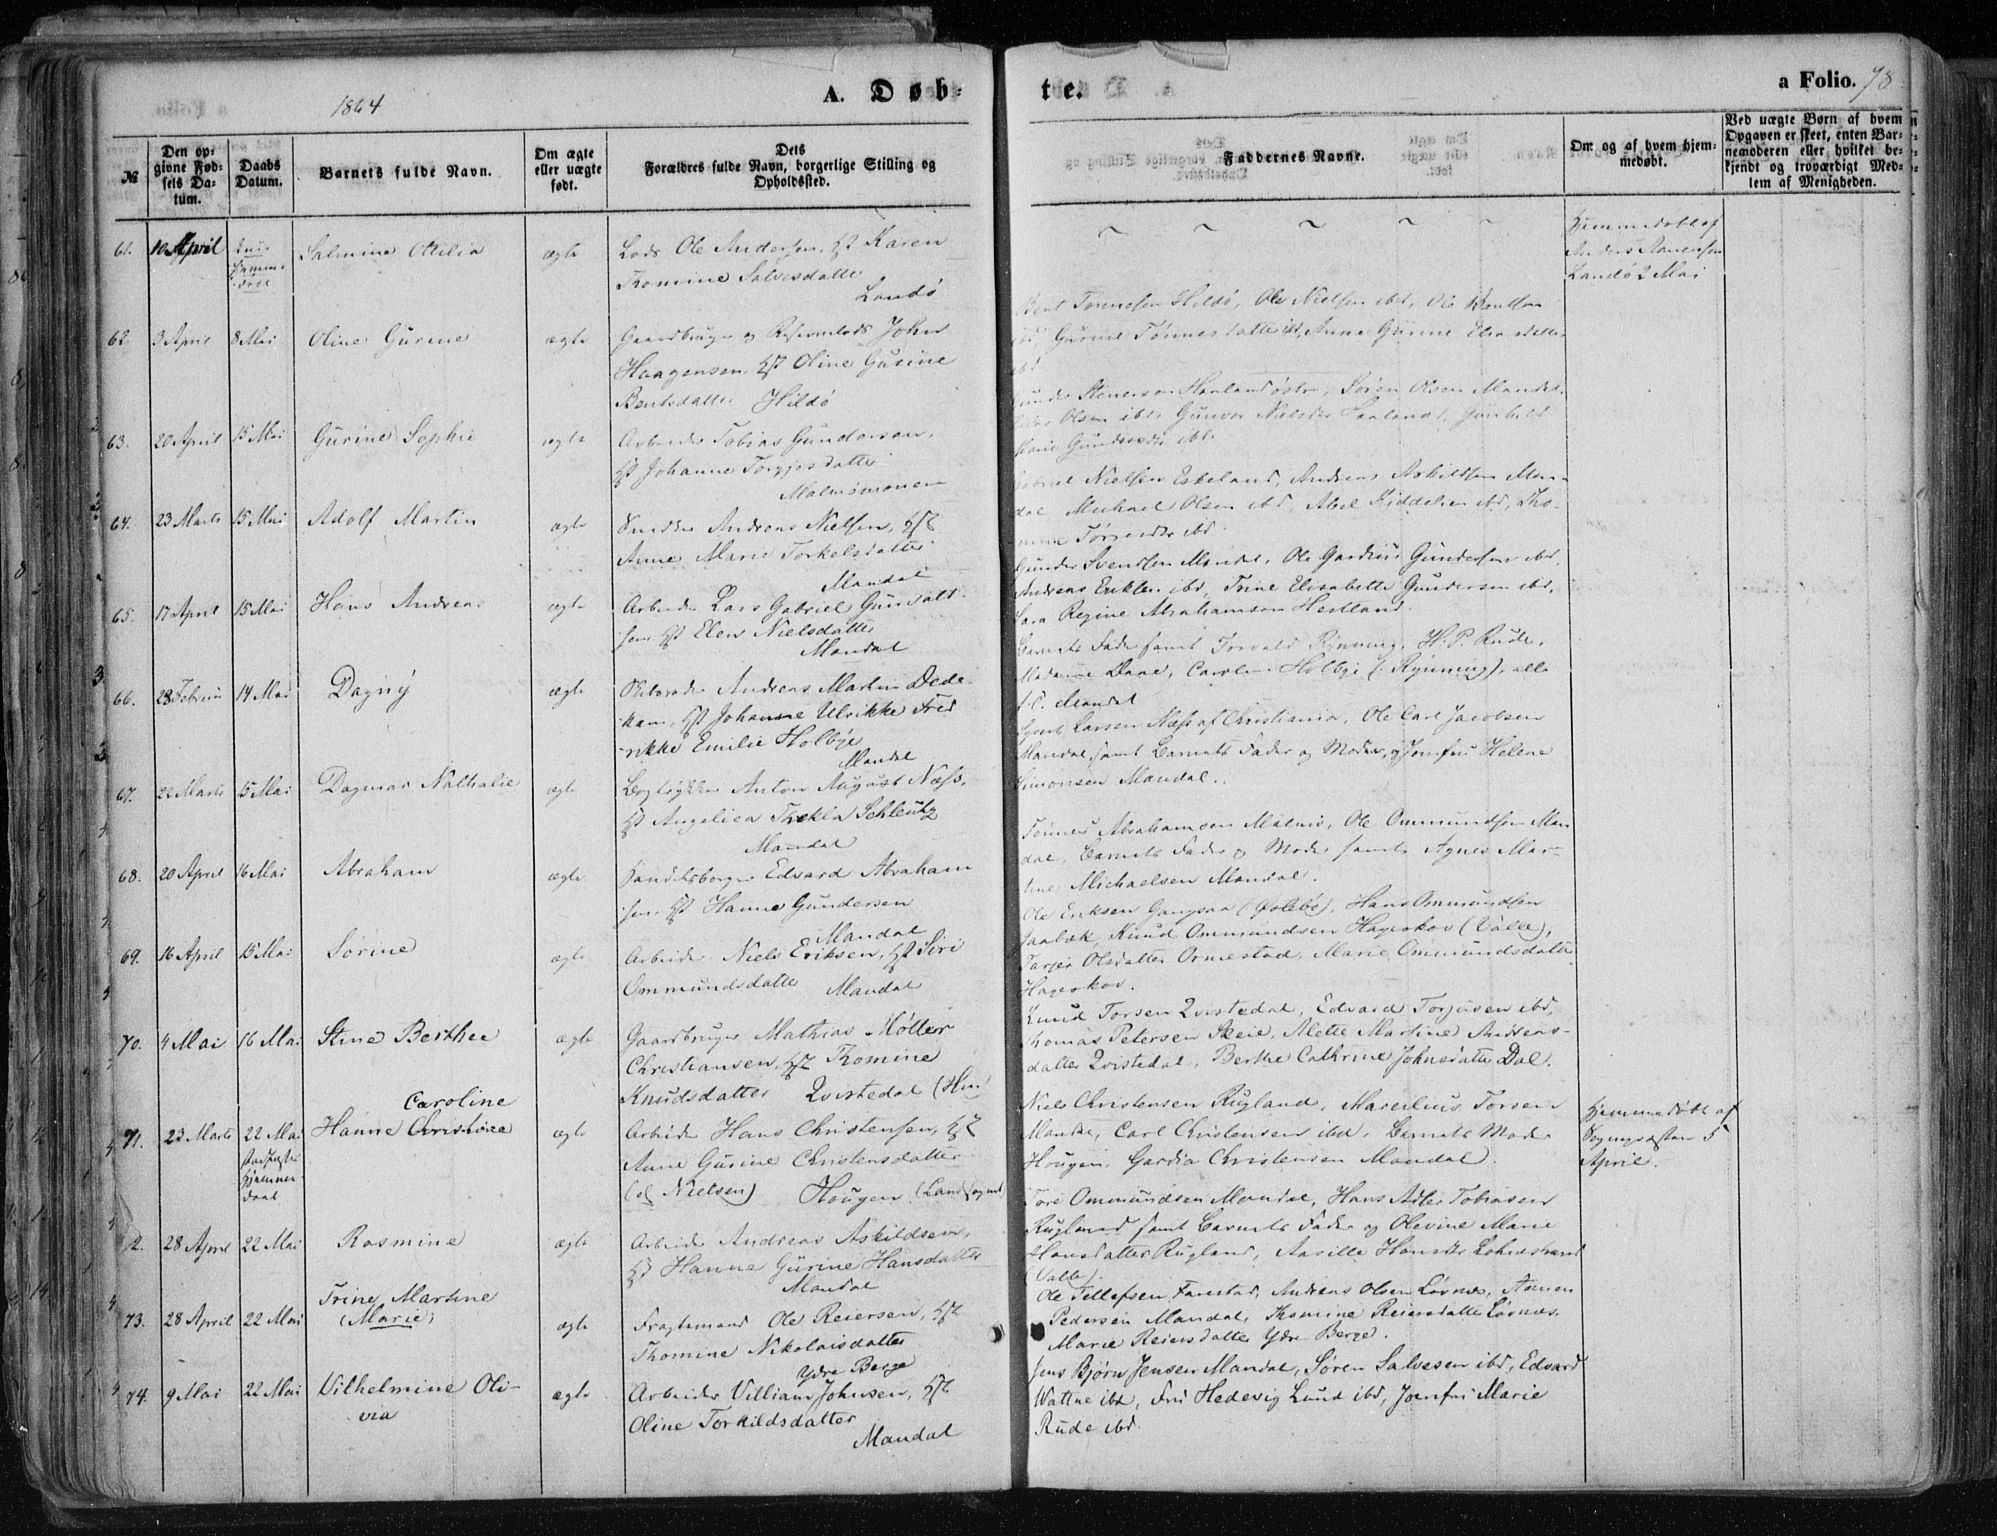 1864
A. Døb-
te.
a Folio. 78
№
Den op-
givne Fød-
sels Da-
tum.
Daabs
Datum.
Barnets fulde Navn.
Om ægte
eller uægte
født.
Dets
Forældres fulde Navn, borgerlige Stilling og
Opholdssted.
Faddernes Navne.
Om og af hvem hjem-
medøbt.
Ved uægte Børn af hvem
Opgaven er skeet, enten Bar-
nemoderen eller hvilket be-
kjendt og troværdigt Med-
lem af Menigheden.
61. 10 April
Salmine Otilia
ægte
Lods Ole Andersen, Hst Karen
Thomine Salvesdatter
Landø
Hjemmedøbt af
Anders Aanensen
Landø 2 Mai
62. 3 April 8 Mai Oline Gurine ægte
Gaardbruger og Reservelods John
Haagensen, Hst Oline Gurine
Bentsdatter Hildø
Bent Tønnesen Hildø, Ole Nielsen ibd, Ole Bentsen
Gurine Tønnesdatter ibd, Anne Gurine Eliasdatter
63. 20 April 15 Mai Gurine Sophie ægte
Arbeider Tobias Gundersen,
Hst Johanne Torgjersdatter
Malmømonen
Gunder Stenersen Haaland østre, Søren Olsen Mandal,
Olsen ibd, Gunvor Nielsdtr Haaland, Gunhild
Marie Gundersdtr ibd.
64. 23 Marts 15 Mai Adolf Martin ægte
Snedker Andreas Nielsen, Hst
Anne Marie Torkelsdatter
Mandal
Gabriel Nielsen Eskeland, Andreas Askildsen Man-
dal, Michael Olsen ibd, Abel Kiddelsen ibd, Tho-
mine Tørresdtr ibd.
65. 17 April 15 Mai Hans Andreas ægte
Arbeider Lars Gabriel Gunvald-
sen, Hst Elen Nielsdatter
Mandal
Gunder Svendsen Mandal, Ole Gardius Gundersen ibd,
Andreas Eriksen ibd, Trine Elisabeth Gundersen ibd,
Sara Regine Abrahamsen Hestland.
66. 28 Februar 14 Mai Dagny ægte
Skibsreder Andreas Martin Dede-
kam, Hst Johanne Ulrikke Fred-
rikke Emilie Holbye
Mandal
Barnets Fader samt Torvald Rynning, H. P. Rude,
Madame Daae, Caroline Holbye (f. Rynning), alle
f. T. Mandal
67. 22 Marts 15 Mai Dagmar Nathalie ægte
Bogtrykker Anton August Næss,
Hst Angelica Thekla Schleutz
Mandal
Larsen Næss af Christiania, Ole Carl Jacobsen
Mandal, samt Barnets Fader og Moder, og Jomfru Helene
Simonsen Mandal.
68. 20 April 16 Mai Abraham ægte
Handelsborger Edvard Abraham
sen, Hst Hanne Gundersen
Mandal
Tønnes Abrahamsen Malmø, Ole Ommundsen Man
dal, Barnets Fader og Moder samt Agnes Mar-
tine Michaelsen Mandal.
69. 16 April 15 Mai Sørine ægte
Arbeider Niels Eriksen, Hst Siri
Ommundsdatter Mandal
Ole Eriksen Gangsaa (Øslebø), Hans Ommundsen
Jaabæk, Knud Ommundsen Hageskov (Valle),
Tarjer Olsdatter Ormestad, Marie Ommundsdatter
Hageskov.
70. 4 Mai 16 Mai Stine Berthee ægte
Gaardbruger Mathias Møller
Christiansen, Hst Thomine
Knudsdatter Qvistedal
Knud Torsen Qvistedal, Edvard Torjusen ibd,
Thomas Petersen Skeie, Mette Martine Andreas-
datter Qvistedal, Berthe Cathrine Johnsdatter Dal.
71. 23 Marts 22 Mai
stadfæstet
Hjemme
daab
Caroline
Hanne Christine
ægte
Arbeider Hans Christensen, Hst
Anne Gurine Christensdatter
(el Nielsen) Hougen (Landsognet)
Niels Christensen Rugland, Marcelius Torsen
Mandal, Carl Christensen ibd, Barnets Moder
Hougen, Gardia Christensen Mandal.
Hjemmedøbt af
Sognepræsten 5
April.
2. 28 April 22 Mai Rasmine ægte
Arbeider Andreas Askildsen,
Hst Hanne Gurine Hansdatter
Mandal
Tore Ommundsen Mandal, Hans Adler Tobiasen
Rugland samt Barnets Fader og Olevine Marie
Hansdatter Rugland, Aasille Hansdtr Lohnestrand
(Valle).
Trine Martine
(Marie)
73. 28 April 22 Mai ægte
Fragtemand Ole Reiersen, Hst
Thomine Nikolaisdatter
Ydre Berge
Ole Tellefsen Farestad, Andreas Olsen Løvnæs, Aanen
Pedersen Mandal, Thomine Reiersdatter Løvnæs,
Marie Reiersdatter Ydre Berge.
74. 9 Mai 22 Mai Vilhelmine Oli-
via
ægte
Arbeider Villiam Johnsen, Hst
Oline Torkildsdatter
Mandal
Jens Bjørn Jensen Mandal, Søren Salvesen ibd, Edvard
Wattne ibd, Fru Hedevig Lund ibd, Jomfru Marie
Rude ibd.